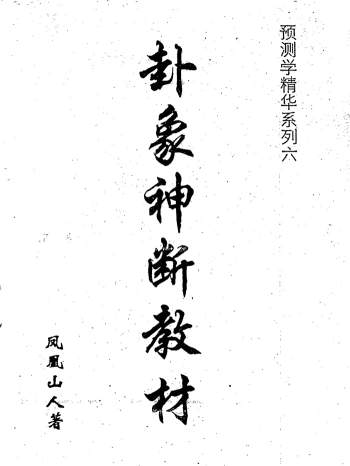 预测学精华系列六
卦象神断教材
凤凰山人著